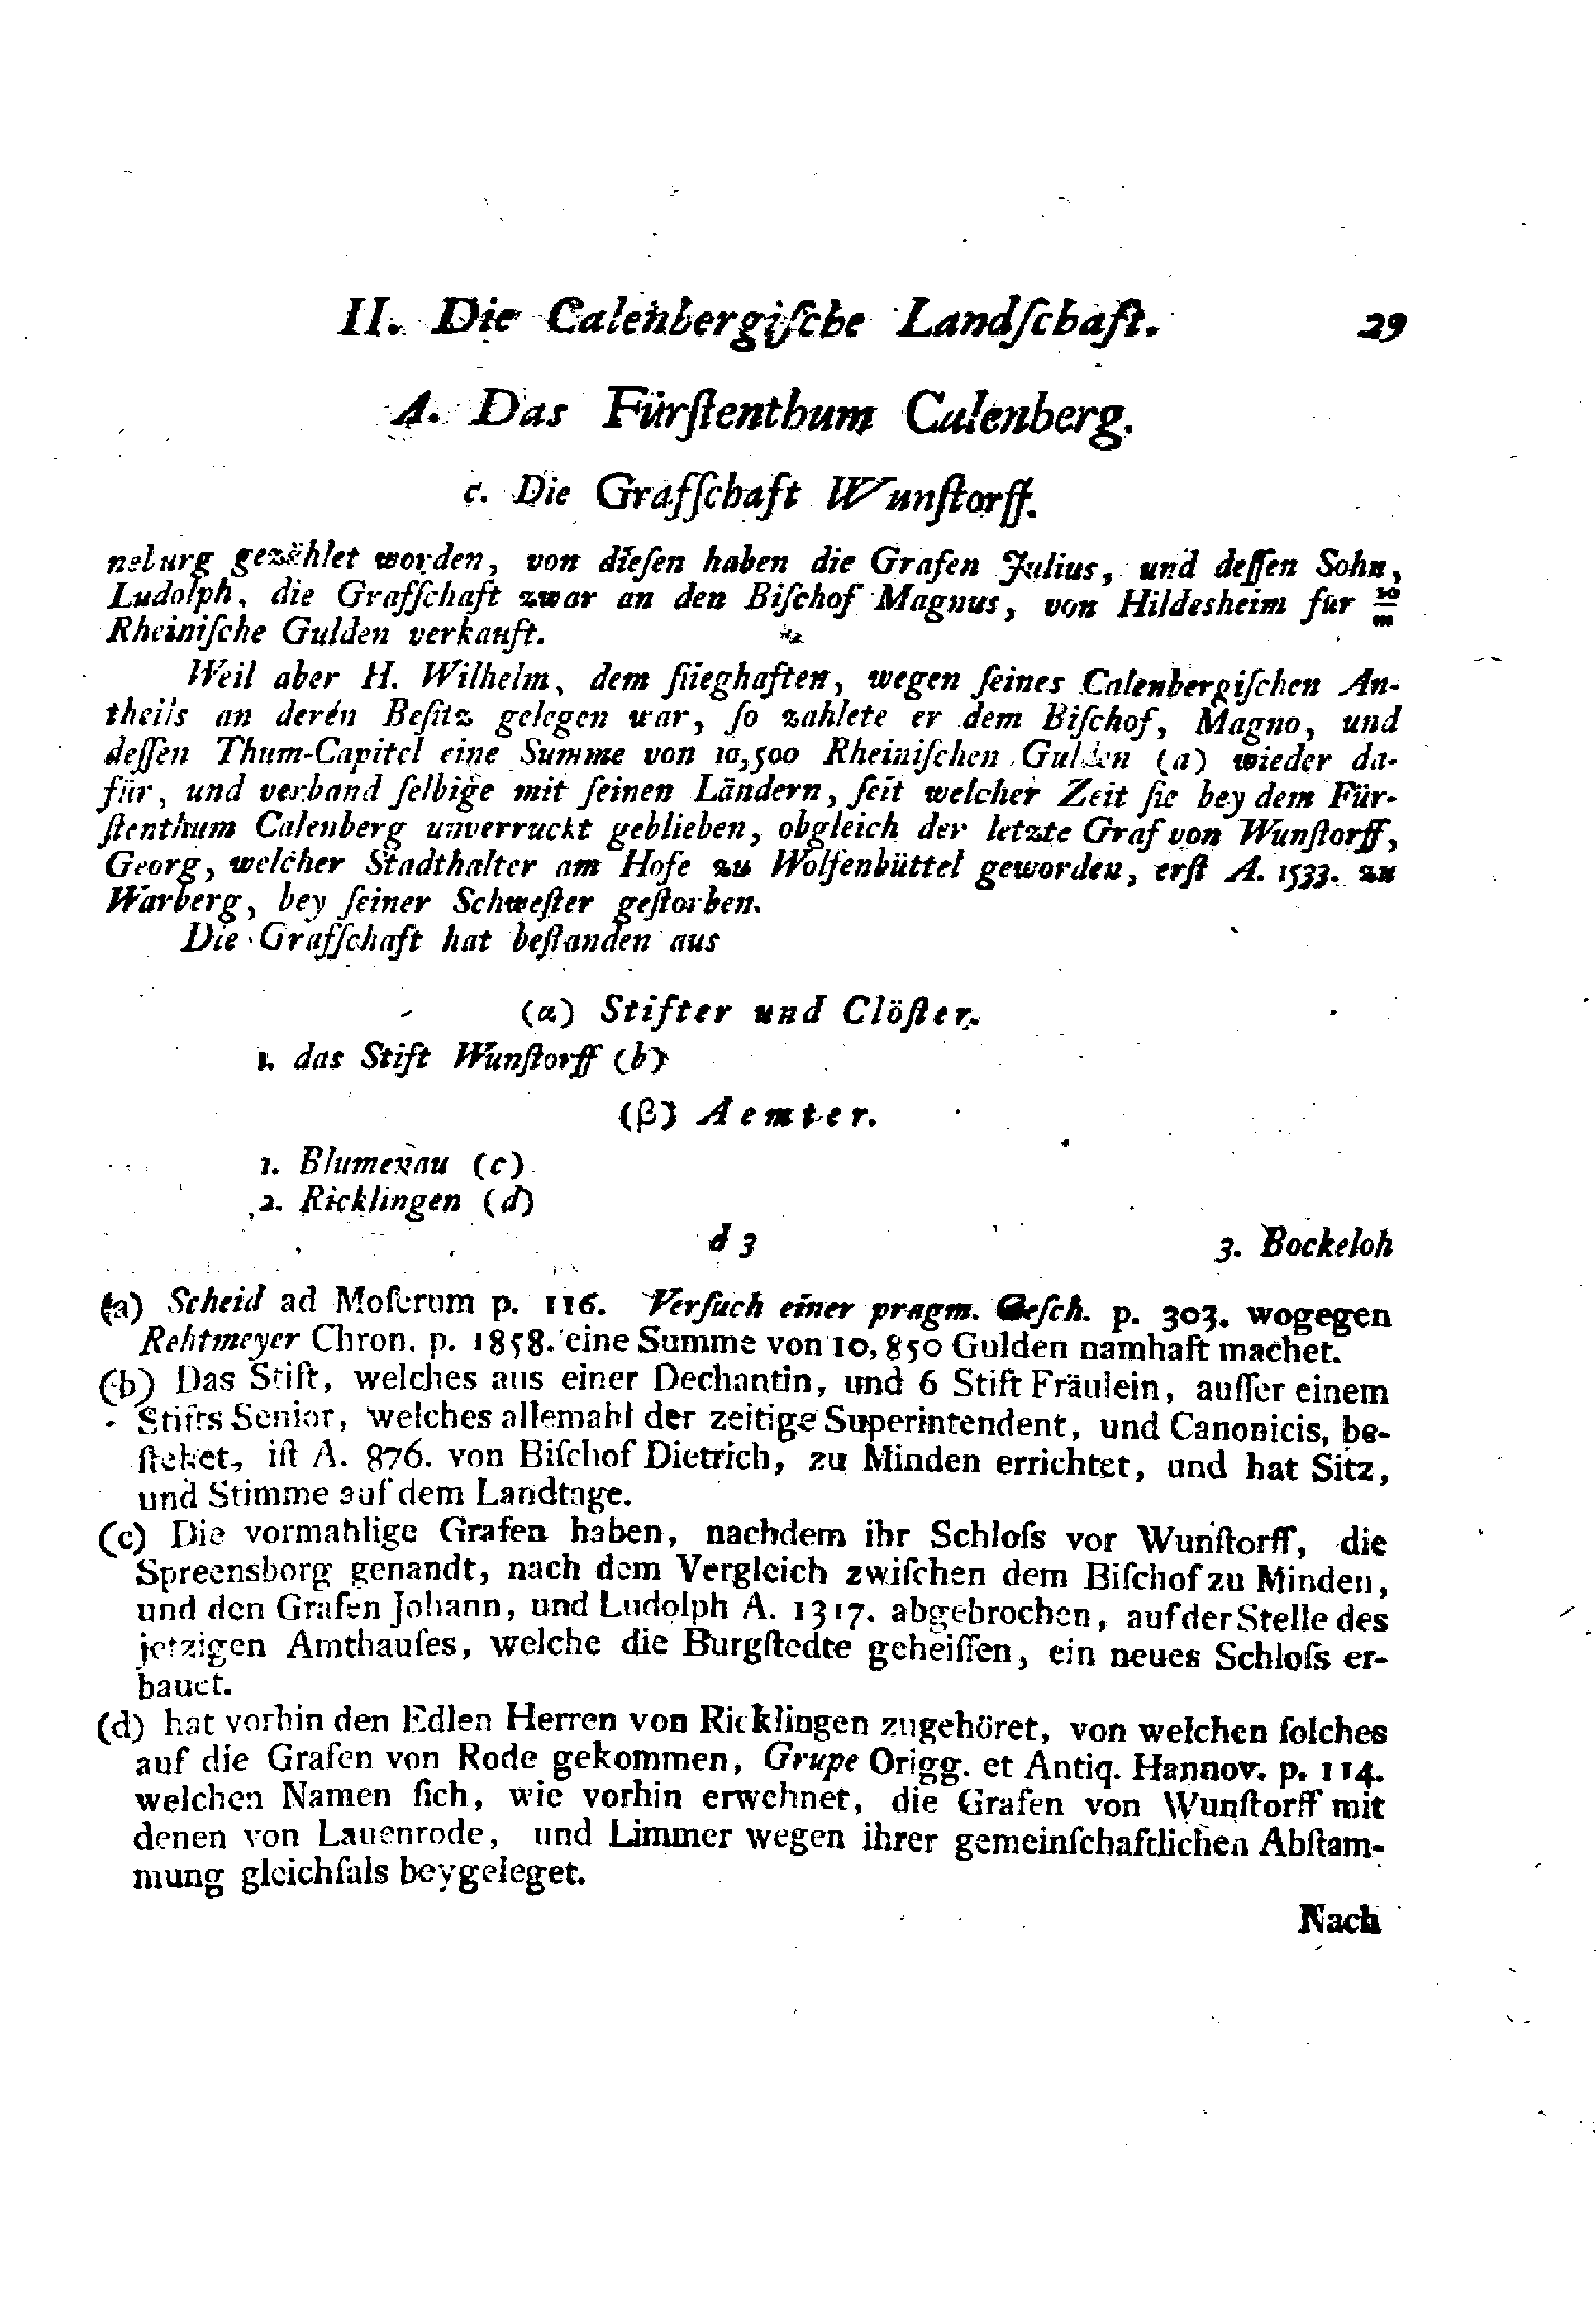 II. Die Calenbergiſche Landſchaft. 29
A. Das Fürſtenthum Calenberg.
c. Die Graffſchaft Wunſtorff.
neburg gezählet worden, von dieſen haben die Grafen Julius, und deſſen Sohn,
Ludolph, die Graffſchaft zwar an den Biſchof Magnus, von Hildesheim für 10/m
Rheiniſche Gulden verkauft.
Weil aber H. Wilhelm, dem ſiieghaften, wegen ſeines Calenbergiſchen An-
theils an deren Beſitz gelegen war, ſo zahlete er dem Biſchof, Magno, und
deſſen Thum-Capitel eine Summe von 10,500 Rheiniſchen Gulden (a) wieder da-
für, und verband ſelbige mit ſeinen Ländern, ſeit welcher Zeit ſie bey dem Für-
ſtenthum Calenberg unverruckt geblieben, obgleich der letzte Graf von Wunſtorff,
Georg, welcher Stadthalter am Hofe zu Wolfenbüttel geworden, erſt A. 1533. zu
Warberg, bey ſeiner Schweſter geſtorben.
Die Graffſchaft hat beſtanden aus
(α) Stifter und Clöſter.
1. das Stift Wunſtorff (b)
(β) Aemter.
1. Blumenau (c)
2. Ricklingen (d)
d 3 3. Bockeloh
(a) Scheid ad Moſerum p. 116. Verſuch einer pragm. Geſch. p. 303. wogegen
Rehtmeyer Chron. p. 1858. eine Summe von 10,850 Gulden namhaft machet.
(b) Das Stift, welches aus einer Dechantin, und 6 Stift Fräulein, auſſer einem
Stifts Senior, welches allemahl der zeitige Superintendent, und Canonicis, be-
ſtehet, iſt A. 876. von Biſchof Dietrich, zu Minden errichtet, und hat Sitz,
und Stimme auf dem Landtage.
(c) Die vormahlige Grafen haben, nachdem ihr Schloſs vor Wunſtorff, die
Spreensborg genandt, nach dem Vergleich zwiſchen dem Biſchof zu Minden,
und den Grafen Johann, und Ludolph A. 1317. abgebrochen, auf der Stelle des
jetzigen Amthauſes, welche die Burgſtedte geheiſſen, ein neues Schloſs er-
bauet.
(d) hat vorhin den Edlen Herren von Ricklingen zugehöret, von welchen ſolches
auf die Grafen von Rode gekommen, Grupe Origg. et Antiq. Hannov. p. 114.
welchen Namen ſich, wie vorhin erwehnet, die Grafen von Wunſtorff mit
denen von Lauenrode, und Limmer wegen ihrer gemeinſchaftlichen Abſtam-
mung gleichfals beygeleget.
Nach